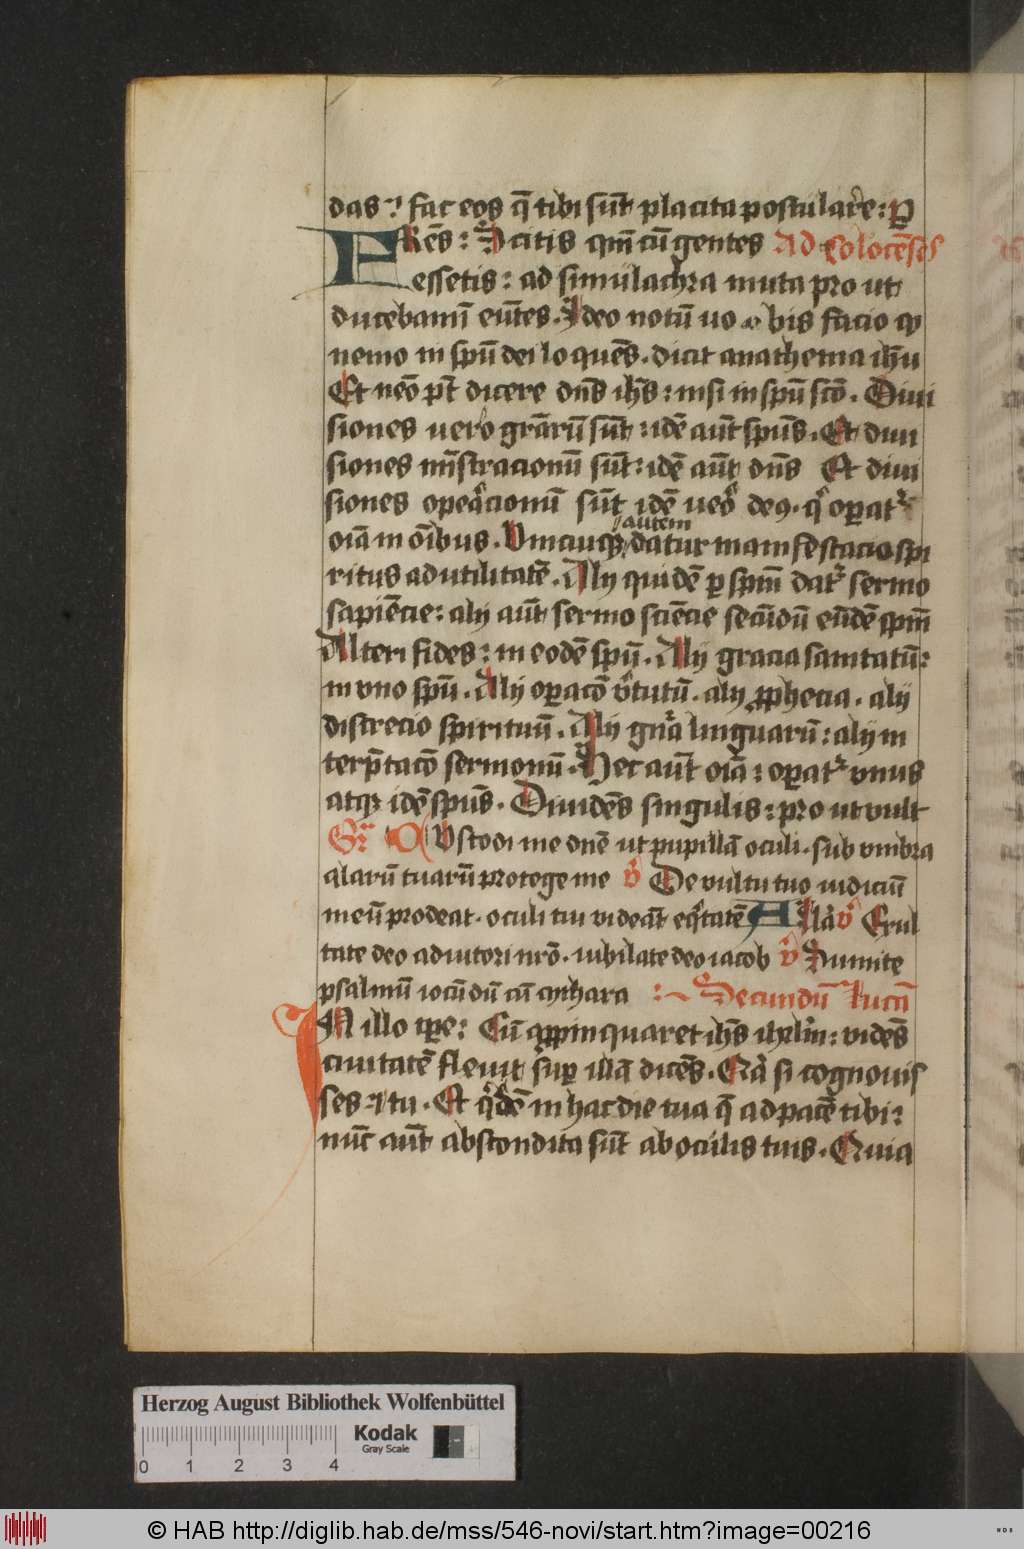 das? fac eos q̄ tibi sūt placita postulare: P̲
FRēs: Scitis qm̄ cū gentes Ad Colocēses
essetis: ad simulachra muta pro ut
ducebamī eūtes. Ideo notū uo bis facio qꝫ
nemo in spū dei loquēs. dicit anathema ihū
Et neō pt̄ dicere dn̄s ih̄s: nisi in spū scō. Diui
siones uero grārū sūt: idē aūt spūs. Et diui
siones mīstracionū sūt: idē aūt dn̄s Et diui
siones opeᵃcionū sūt idē ueᵒ deꝰ. qⁱ oꝑatʳ
oīa in oībus. Vnicuiqꝫ autem datur manifestacio spi
ritus ad utilitatē. Alij quidē ꝑ spm̄ datʳ sermo
sapiēcie: alij aūt sermo sciēcie secūdū eūdē spm̄
Alteri fides: in eodē spū. Alij gracia sanitatū:
in vno spū. Alij oꝑacō vⁱtutū. alij ꝓphecia. alij
discrecio spirituū. Alij gnᵃa linguarū: alij in
terp̄tacō sermonū. Hec aūt oīa: oꝑatʳ vnus
atqꝫ idē spūs. Diuidēs singulis: pro ut vult
Gr̄ CVstodi me dnē ut pupillā oculi. sub vmbra
alarū tuarū protege me v̊ De vultu tuo iudiciū
meū prodeat. oculi tui videāt eqⁱtatē Allā v̊ Exul
tate deo adiutori nrō. iubilate deo iacob v̊ Sumite
psalmū iocūdū cū cythara :~ Secundū Lucā
IN illo tꝑe: Cū apꝓpinquaret ih̄s ihrlm̄: vidēs
ciuitatē fleuit suꝑ illā dicēs. Qᵃ si cognouis
ses ⁊ tu. Et qⁱdē in hac die tua q̄ ad pacē tibi:
nūc aūt abscondita sūt ab oculis tuis. Quia
Herzog August Bibliothek Wolfenbüttel
0 1 2 3 4
Kodak
Gray Scale
© HAB http://diglib.hab.de/mss/546-novi/start.htm?image=00216